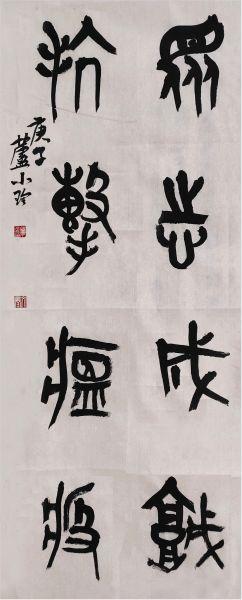 眾志成城
抗擊瘟疫
庚子蘆小